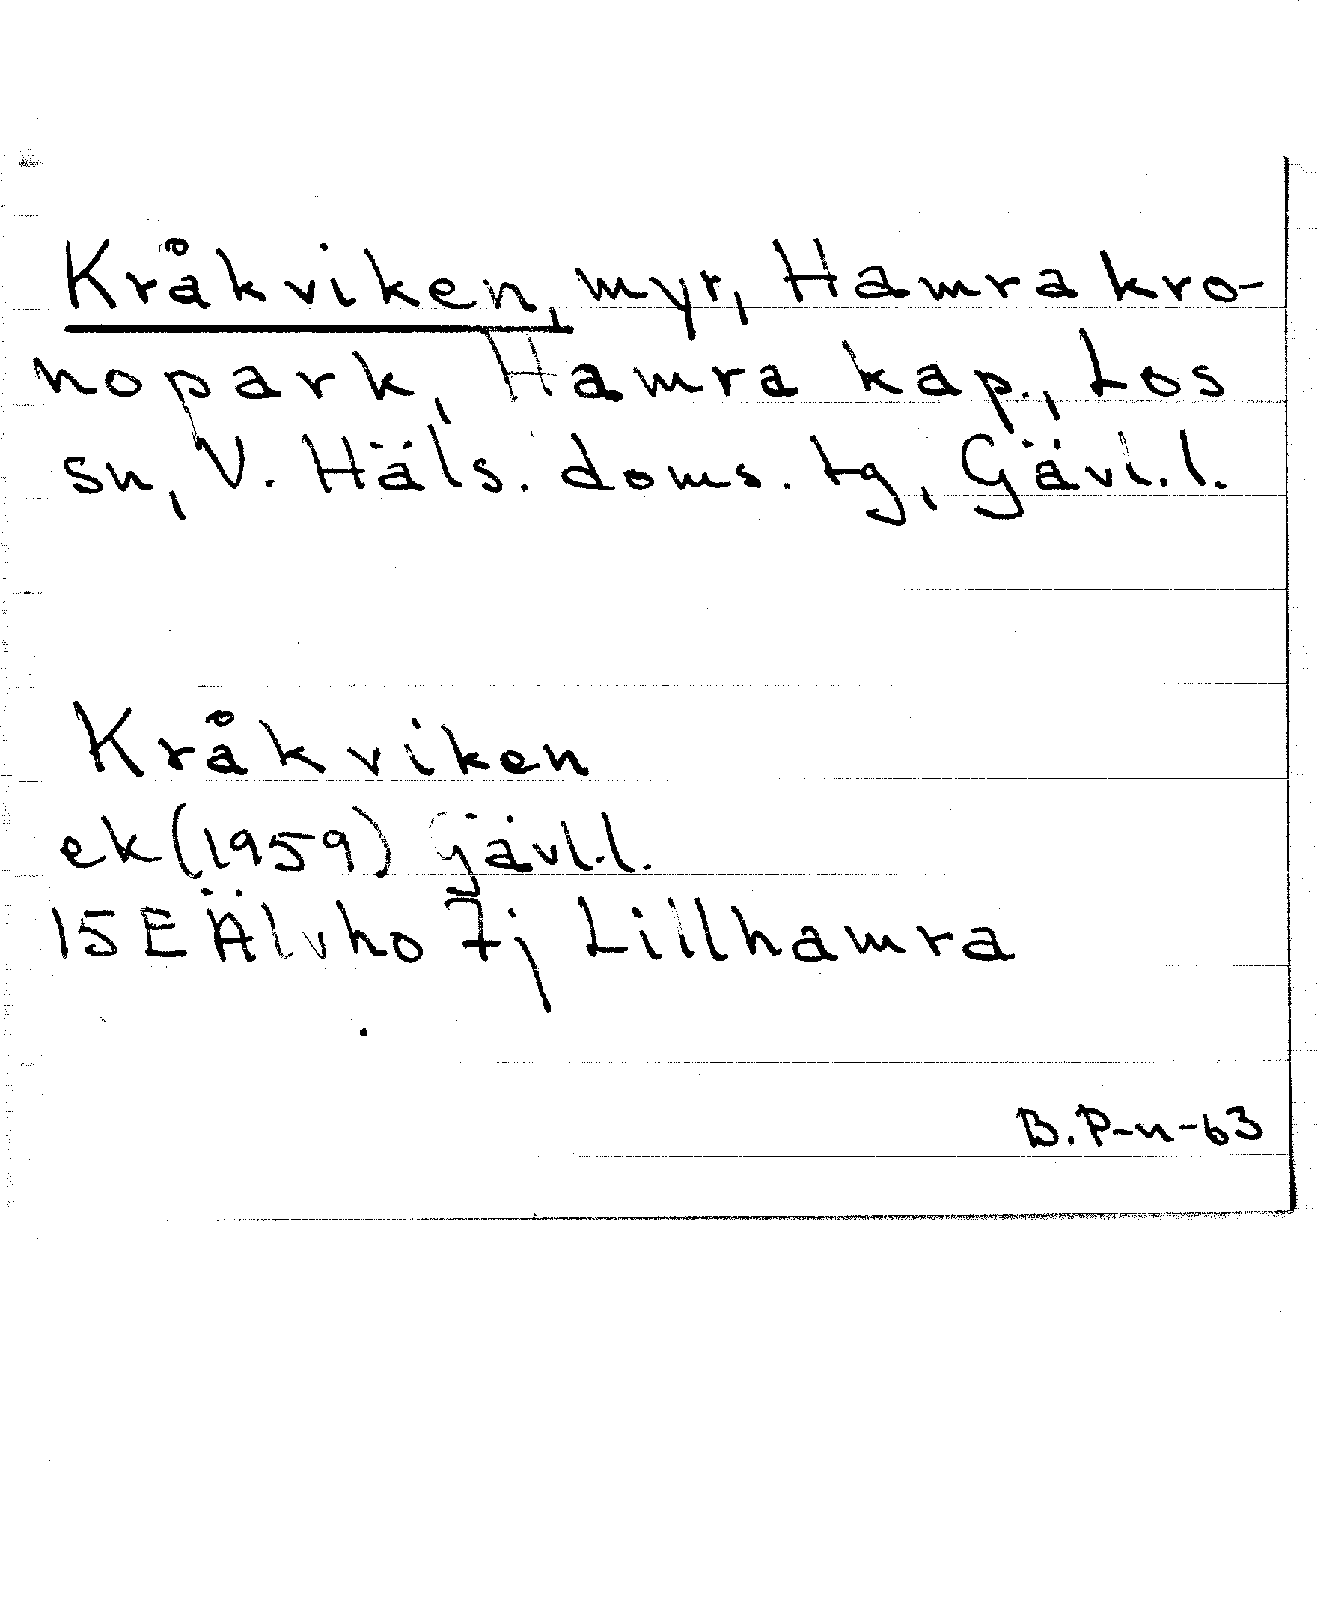 Kråkviken, myr, Hamra kro-
nopark, Hamra kap., Los
sn, V. Häls. doms. tg, Gävl. l.
Kråkviken
ek (1959) Gävl. l.
15 E Älvho 7j Lillhamra
B. P-n-63